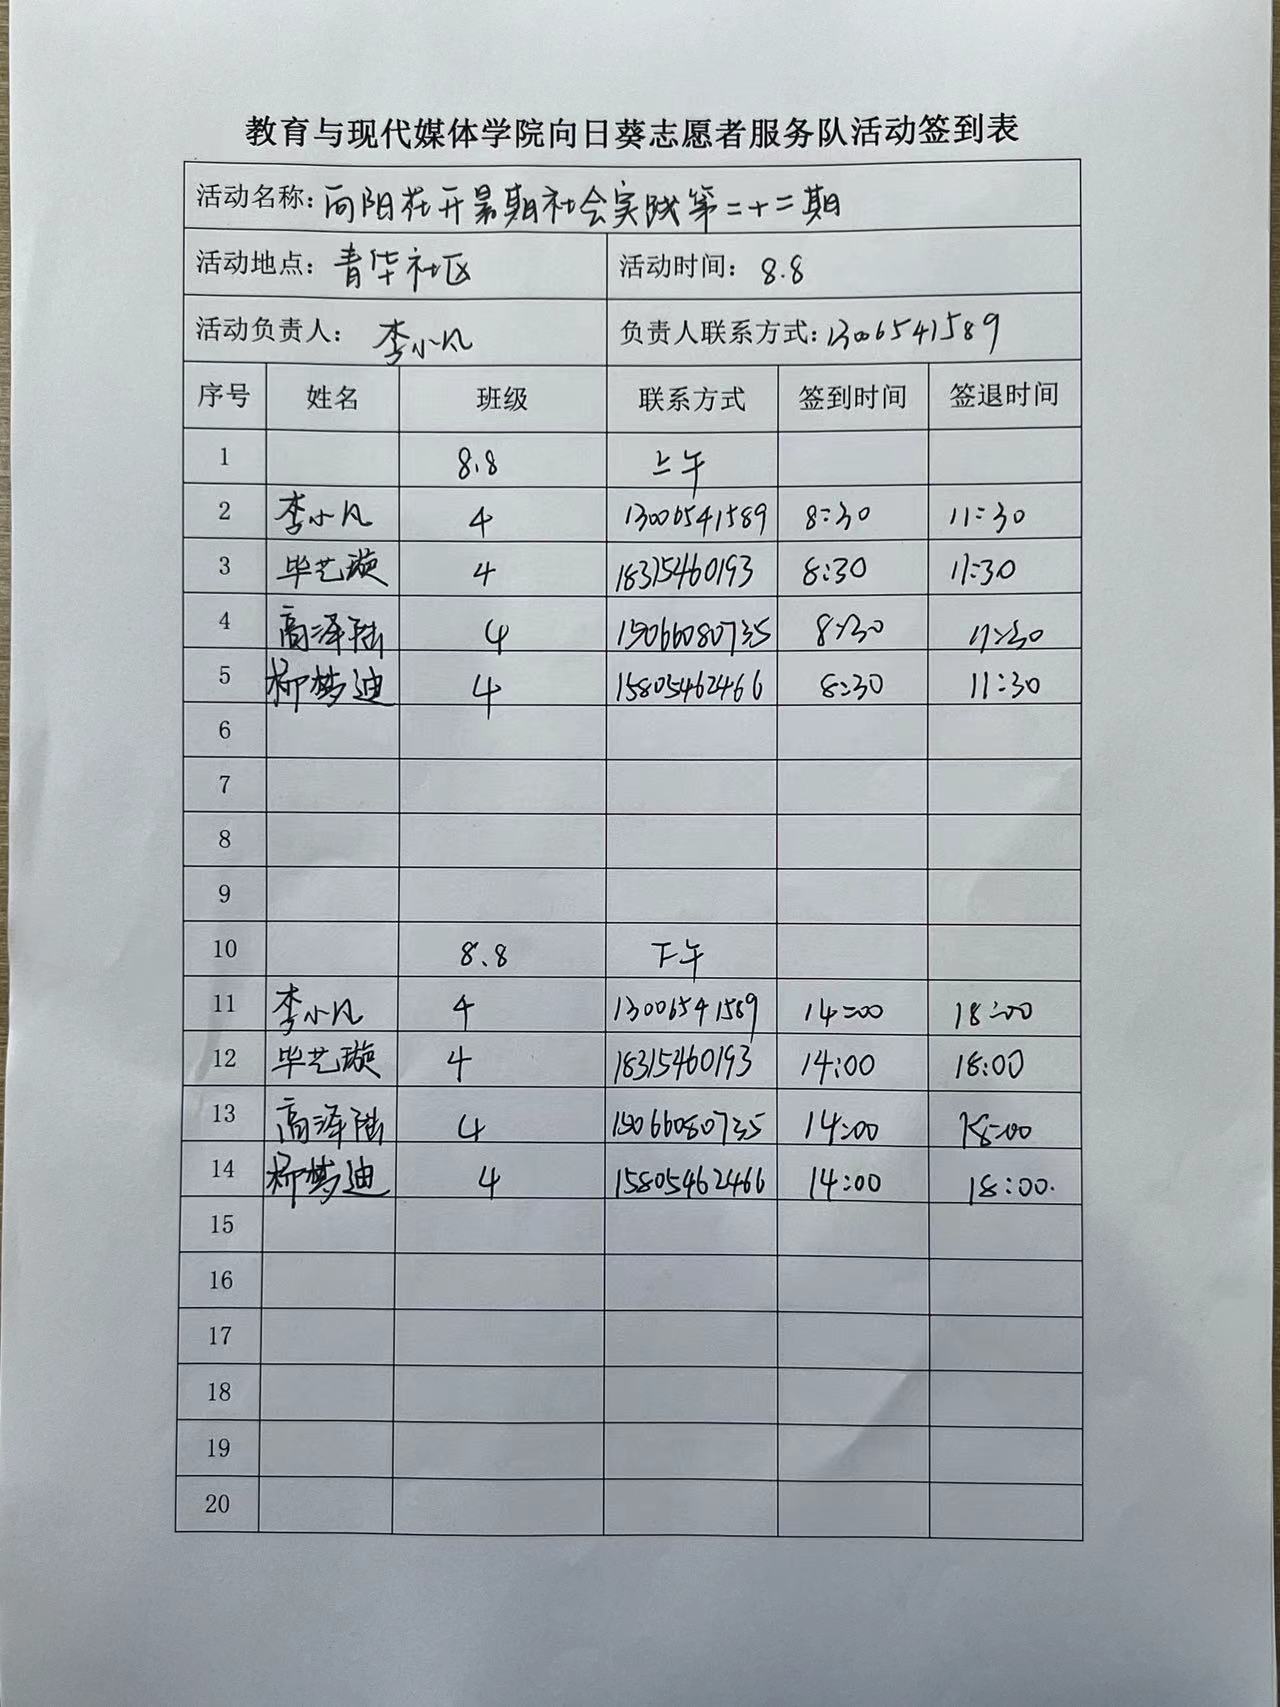 教育与现代媒体学院向日葵志愿者服务队活动签到表
活动名称: 向阳花开暑期社会实践第二十二期
活动地点: 青华社区 活动时间: 8.8
活动负责人: 李小凡 负责人联系方式: 13006541589
序号 姓名 班级 联系方式 签到时间 签退时间
1 8.8 上午
2 李小凡 4 13006541589 8:30 11:30
3 毕艺璇 4 18315460193 8:30 11:30
4 高泽陆 4 15066080735 8:30 11:30
5 柳梦迪 4 15805462466 8:30 11:30
6
7
8
9
10 8.8 下午
11 李小凡 4 13006541589 14:00 18:00
12 毕艺璇 4 18315460193 14:00 18:00
13 高泽陆 4 15066080735 14:00 18:00
14 柳梦迪 4 15805462466 14:00 18:00.
15
16
17
18
19
20